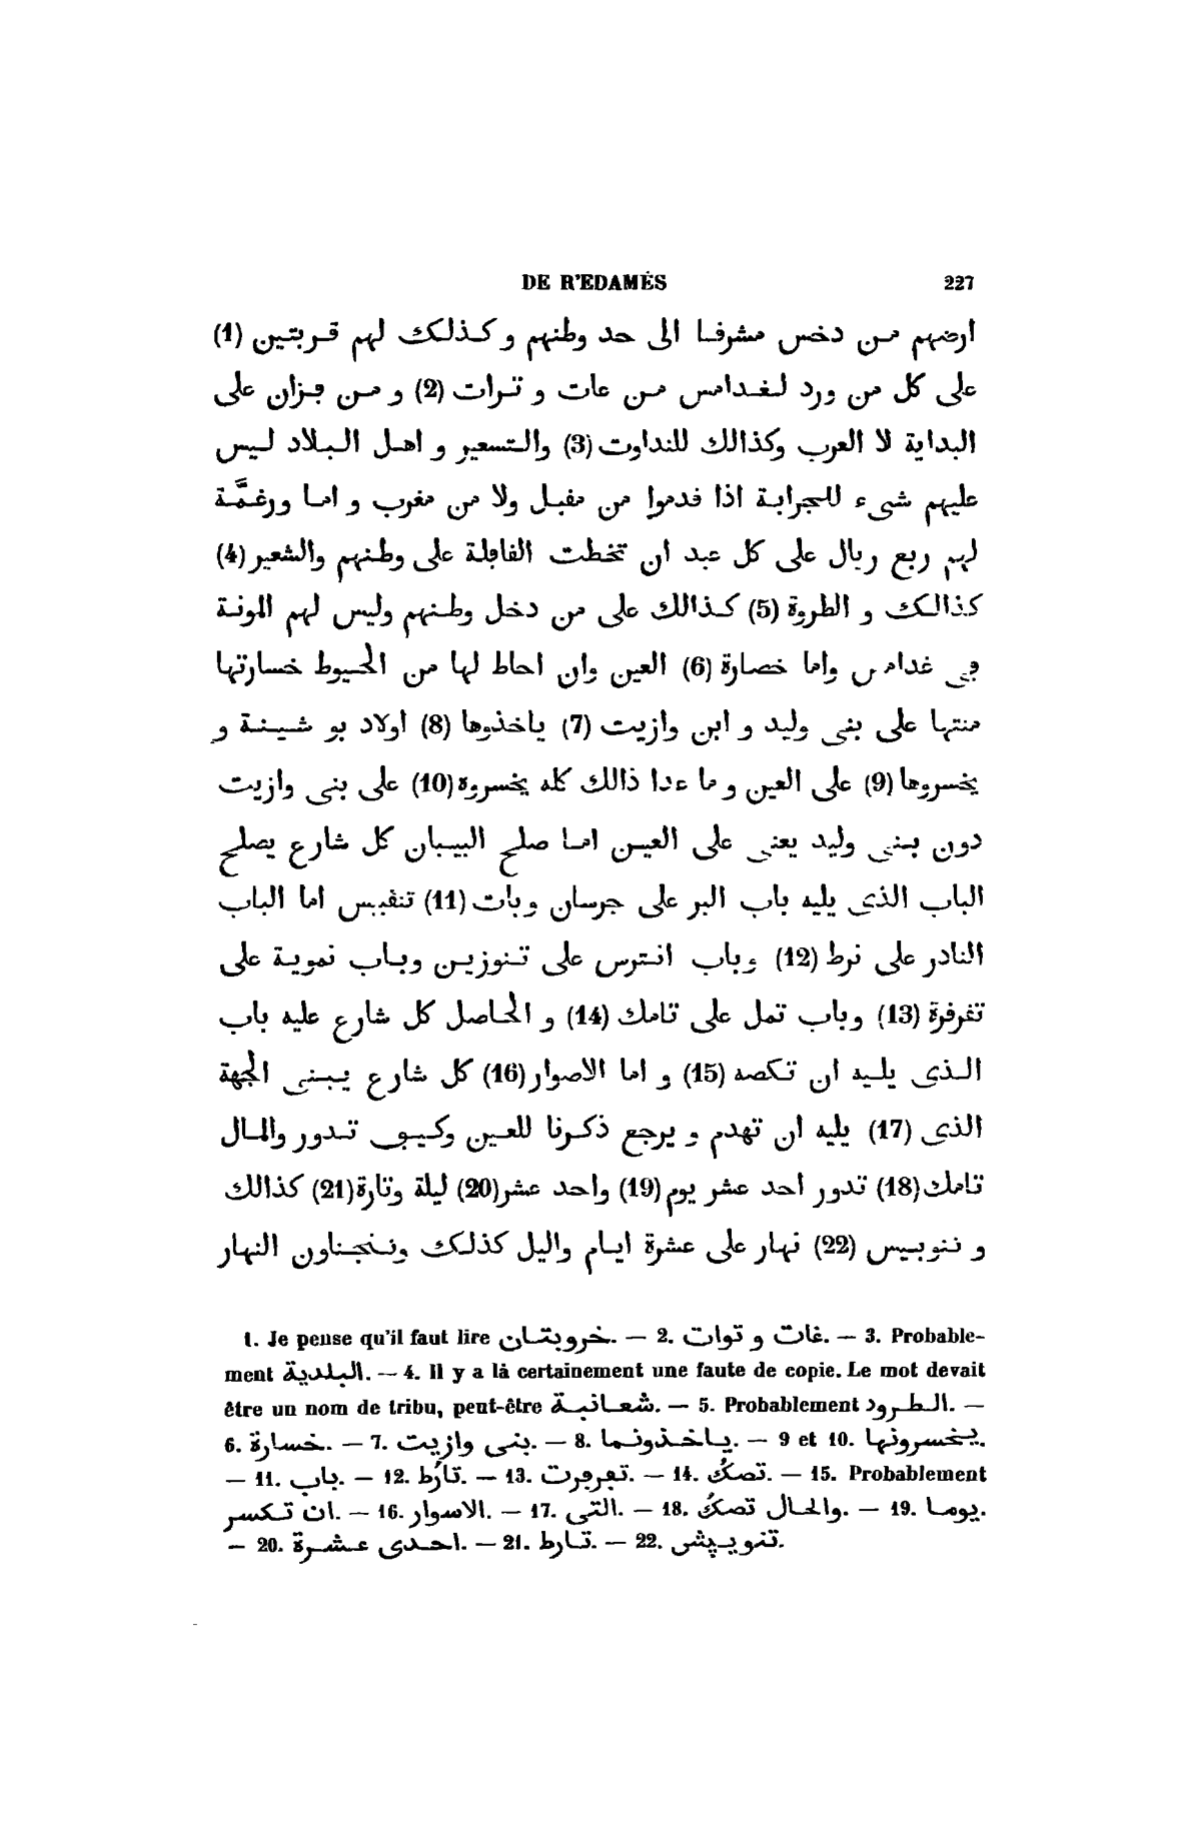 DE R'EDAMÈS 227
ارضهم من دخس مشرفا الى حد وطنهم و كذلك لهم قربتين (1)
على كل من ورد لغدامس من عات و ترات (2) و من ڢزان على
البداية لا العرب وكذالك للنداوت (3) والتسعير و اهل البلاد ليس
عليهم شىء للجرابة اذا فدموا من مڢبل ولا من مغرب و اما ورغمَّة
لهم ربع ريال على كل عبد ان تخطت الفاڢلة على وطنهم والشعير (4)
كذالك و الطروة (5) كذالك على من دخل وطنهم وليس لهم المونة
ڢى غدامس واما خصارة (6) العين وان احاط لها من الحيوط خسارتها
منتها على بنى وليد و ابن وازيت (7) ياخذوها (8) اولاد بو شينة و
يخسروها (9) على العين و ما عدا ذالك كله يخسروه (10) على بنى وازيت
دون بنى وليد يعنى على العين اما صلح البيبان كل شارع يصلح
الباب الذى يليه باب البر على جرسان وبات (11) تنفبس اما الباب
النادر على نرط (12) وباب انترس على تنوزين وباب نموية على
تفرفرة (13) وباب تمل على تامك (14) و الحاصل كل شارع عليه باب
الذى يليه ان تكصه (15) و اما الاصوار (16) كل شارع يبنى الجهة
الذى (17) يليه ان تهدم و يرجع ذكرنا للعين وكيڢ تدور والمال
تامك (18) تدور احد عشر يوم (19) واحد عشر (20) ليلة وتارة (21) كذالك
و ننوبيس (22) نهار على عشرة ايام واليل كذلك ونجناون النهار
1. Je pense qu'il faut lire خروبتان. — 2. غات و توات. — 3. Probable-
ment البلدية. — 4. Il y a là certainement une faute de copie. Le mot devait
être un nom de tribu, peut-être شعانبة. — 5. Probablement الطرود. —
6. خسارة. — 7. بنى وازيت. — 8. ياخذونما. — 9 et 10. يخسرونها.
— 11. باب. — 12. تارُط. — 13. تڢرڢرت. — 14. تصكُ. — 15. Probablement
ان تكسر. — 16. الاسوار. — 17. التى. — 18. والحال تصكُ. — 19. يوما.
— 20. احدى عشرة. — 21. تارط. — 22. تنويپش.